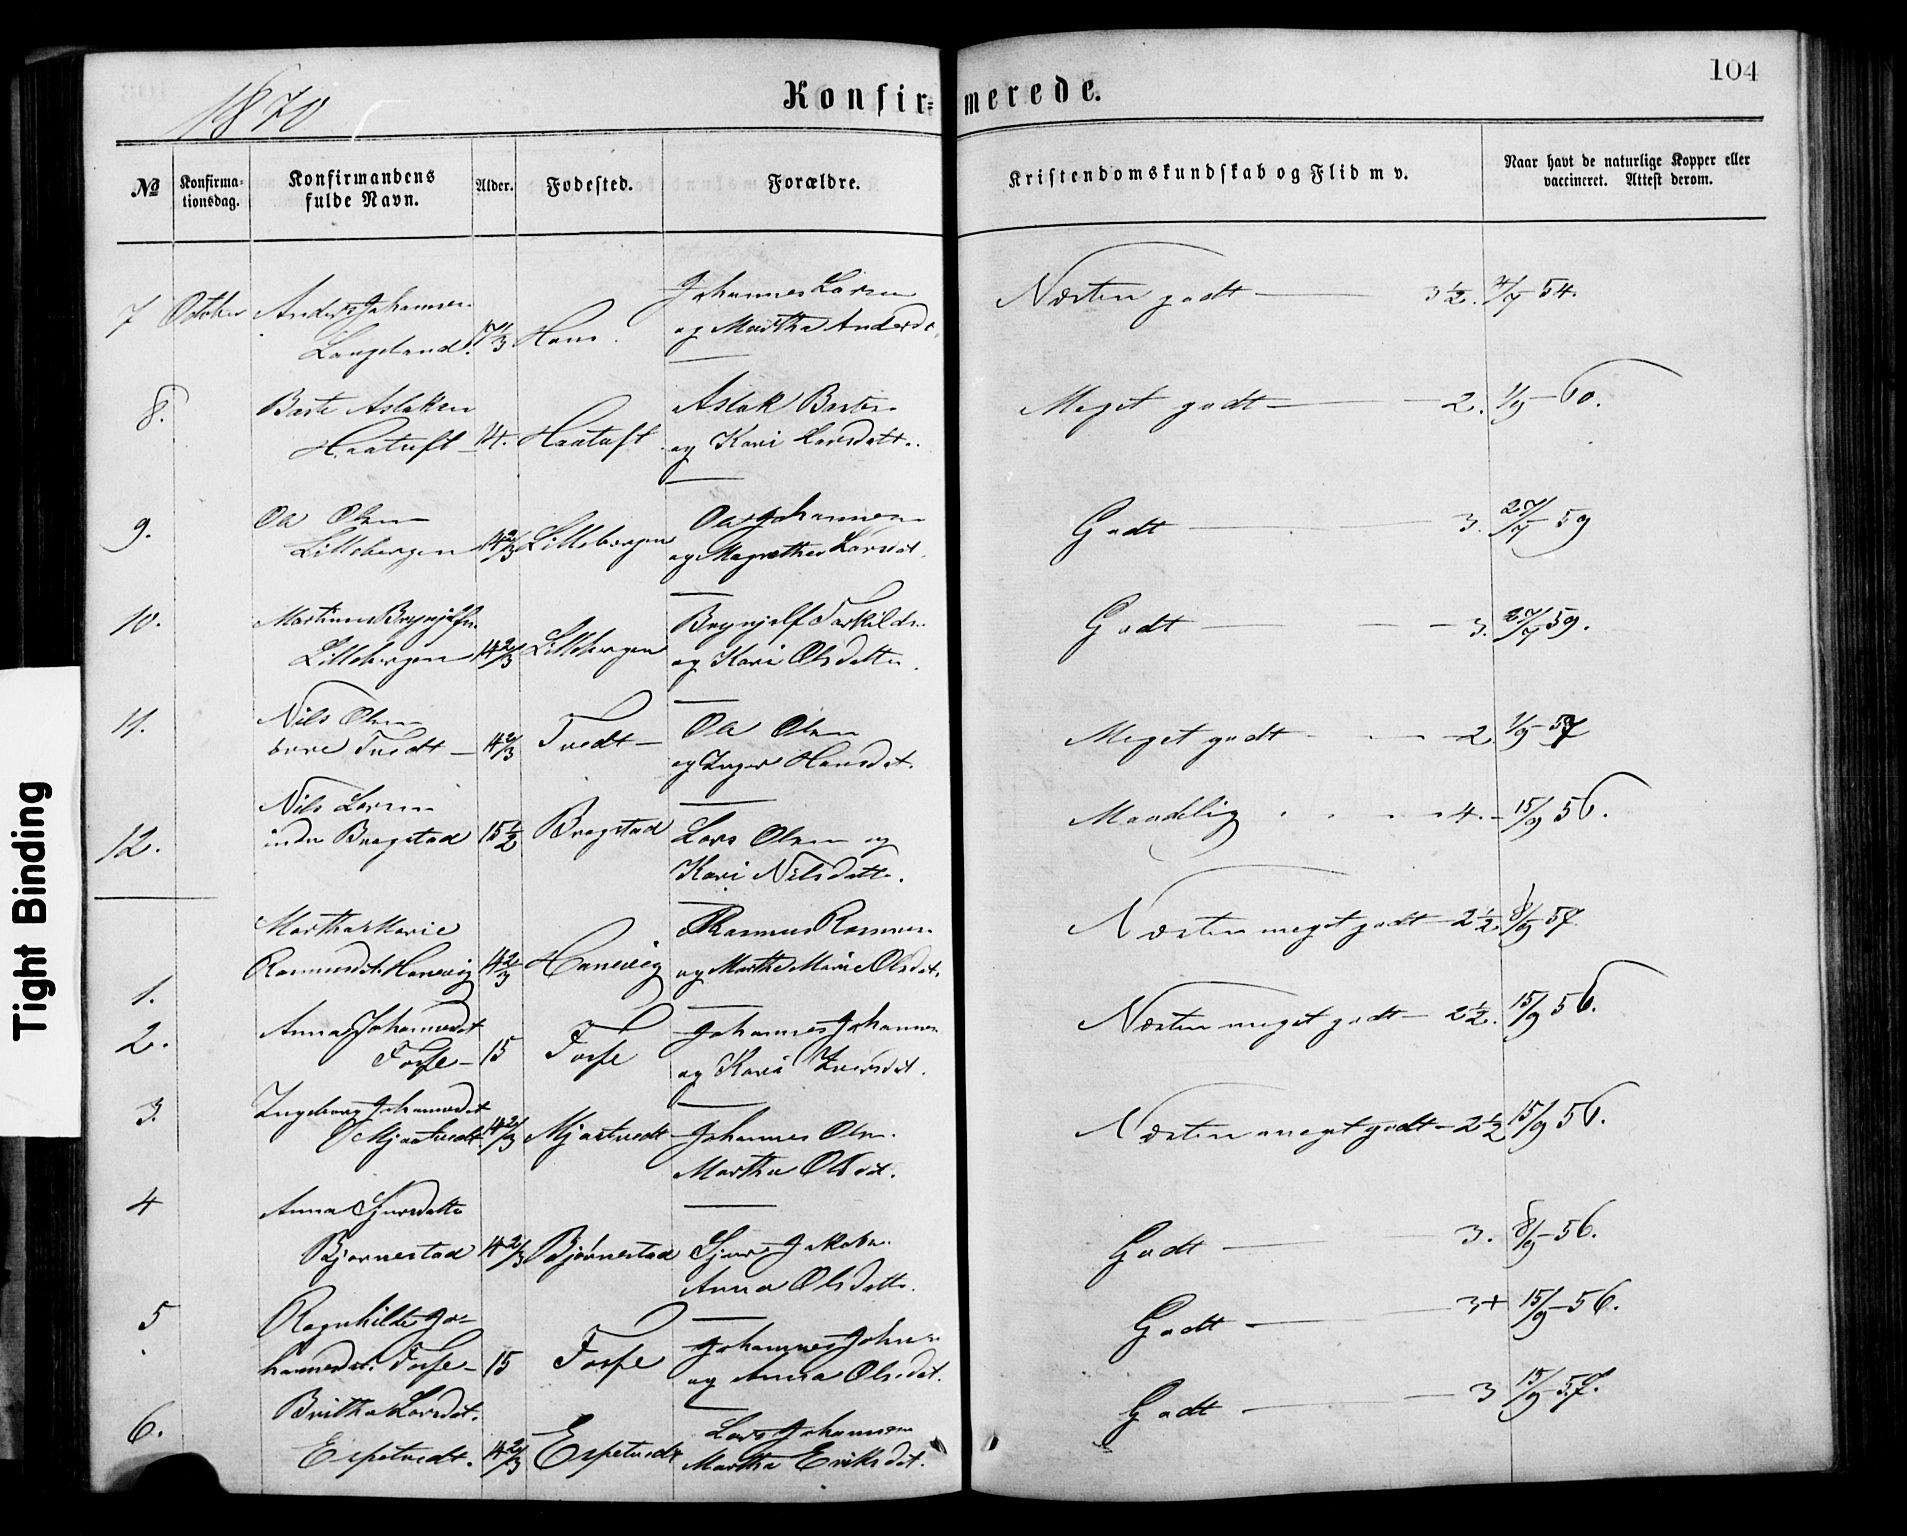 1870
Konfir=merede.
104
No
Konfirma-
tionsdag.
Konfirmandens
fulde Navn.
Alder.
Fødested.
Forældre.
Kristendomskundskab og Flid m v.
Naar havt de naturlige Kopper eller
vaccineret. Attest derom.
7 October Johannes Larsen
Langeland og Martha
Næsten godt 3½.
8.
Haatuft 14. Haatuft Aslak
og Kari Larsdatt.
Meget godt 2. 1/9 60.
9.
Ole Olsen
Lillebergen 14 2/3 Lillebergen
og Magrethe Larsdt.
Godt 3. 27/7 59
10.
Lillebergen 14 2/3 Lillebergen Brynjolf Torkilds.
og Kari Olsdatter.
Godt 3. 27/7 59.
11.
Nils Olsen
Tvedt 14 2/3 Tvedt Ole Olsen
og Inger Hansdat.
Meget godt 2 1/9 57
12.
Nils Larsen
indre Bragstad 15½ Bragstad Lars Olsen og
Kari Nilsdatte.
Maadelig 4. 15/9 56.
1.
Martha Marie
Rasmusdt. Hanevig 14 2/3 Hanevig Rasmus Rasmus.
og Martha Marie Olsdat.
Næsten meget godt 2½ 8/9 57.
2.
Anna Johannesdt
Fosse 15 Fosse Johannes Johannes.
og Kari Iversdat.
Næsten meget godt 2½. 15/9 56.
3.
Ingeborg Johannesdt
Mjøstvedt 14 2/3 Mjøstvedt Johannes Olsn.
Martha Olsdt.
Næsten meget godt 2½ 15/9 56.
4
Anna Sjursdatte
Bjørnestad 14 2/3 Bjørnestad Sjur Jakobs.
Anna Olsdatte.
Godt 3. 8/9 56.
5
Ragnhilde Jo=
hannesdt. Fosse 15 Fosse Johannes
og Anna Olsdat.
Godt 3+ 15/9 56.
6.
Britha Larsdat.
Espetvedt. 14 2/3 Espetvedt Lars Johannesen
Martha Eriksdat.
Godt 3 15/9 57.
Tight Binding